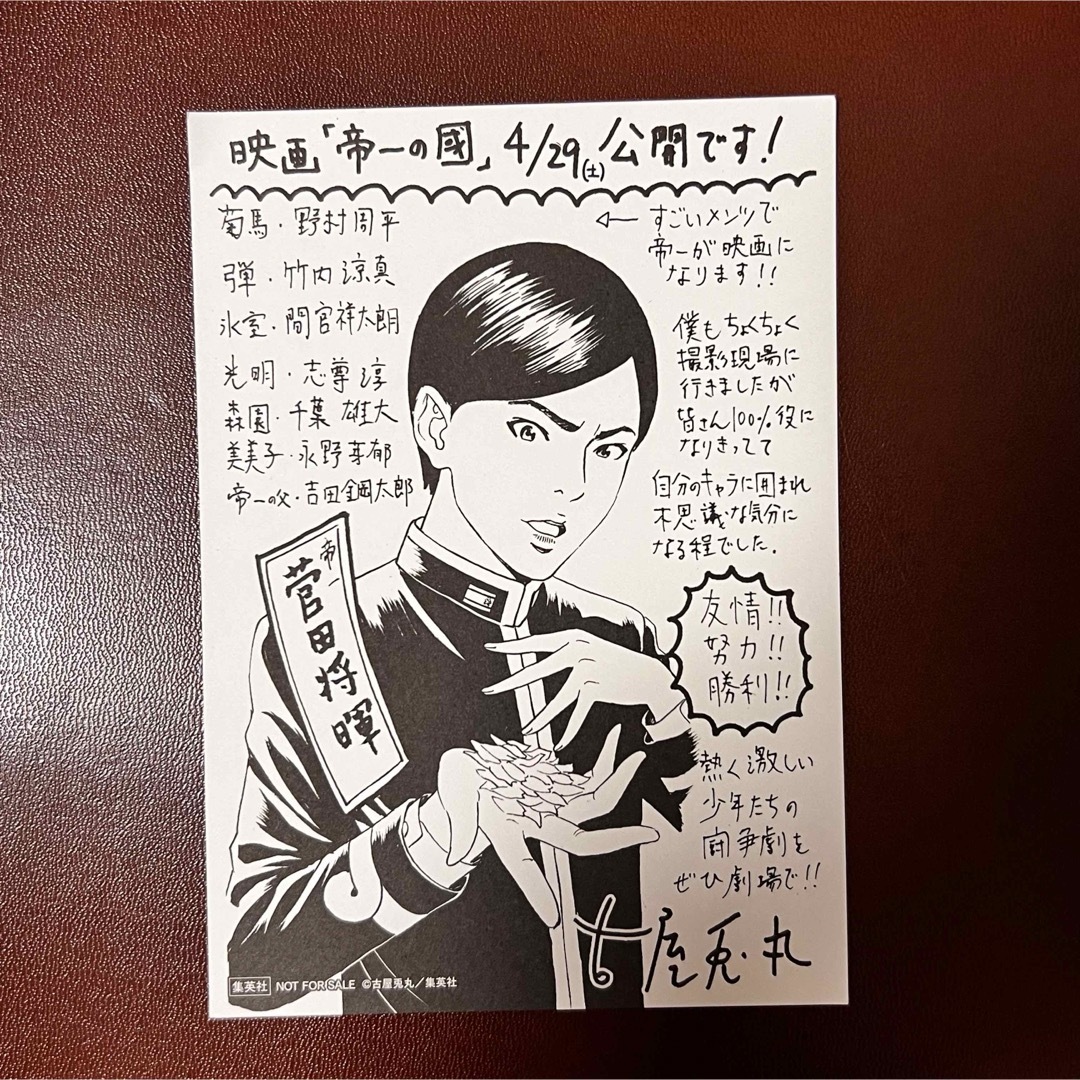 映画「帝一の國」4/29(土)公開です!
菊馬・野村周平
弾・竹内涼真
氷室・間宮祥太朗
光明・志尊淳
森園・千葉雄大
美美子・永野芽郁
帝一の父・吉田鋼太郎
帝一
菅田将暉
←すごいメンツで
帝一が映画に
なります!!
僕もちょくちょく
撮影現場に
行きましたが
皆さん100%役に
なりきってて
自分のキャラに囲まれ
不思議な気分に
なる程でした.
友情!!
努力!!
勝利!!
熱く激しい
少年たちの
闘争劇を
ぜひ劇場で!!
古屋兎丸
集英社 NOT FOR SALE ©古屋兎丸/集英社